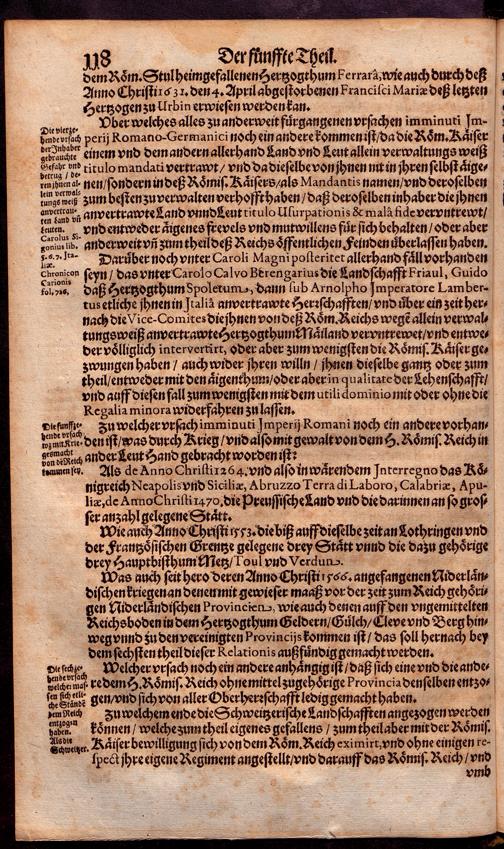 118
Der fünffte Theil.
dem Röm. Stul heimgefallenen Hertzogthum Ferrarâ, wie auch durch deß
Anno Christi 1631. den 4. April abgestorbenen Francisci Mariæ deß letzten
Hertzogen zu Urbin erwiesen werden kan.
Vber welches alles zu anderweit fürgangenen vrsachen imminuti Im-
perij Romano-Germanici noch ein andere kommen ist/ da die Röm. Käiser
einem vnd dem andern allerhand Land vnd Leut allein verwaltungs weiß
titulo mandati vertrawt / vnd da dieselbe von jhnen mit in jhren selbst äige-
nen/ sondern in deß Römis. Käisers/ als Mandantis namen/ vnd deroselben
zum besten zu verwalten verhofft haben/ daß deroselben inhaber die jhnen
anvertrawte Land vnnd Leut titulo Usurpationis & malâ fide veruntrewt/
vnd entweder äigenes frevels vnd mutwillens für sich behalten / oder aber
anderweit vñ zum theil deß Reichs öffentlichen Feinden überlassen haben.
Die vierze-
hende vrsach
der Inhaber
gebrauchte
Gefahr vnd
betrug / de-
ren jhnen al-
lein verwal-
tungs weiß
anvertrau-
ten Land vñ
Leuten.
Carolus Si-
gonius lib.
5. 6. 7. Ita-
liæ.
Chronicon
Carionis
fol. 726.
Darüber noch vnter Caroli Magni posteritet allerhand fäll vorhanden
seyn / da vnter Carolo Calvo Berengarius die Landschafft Friaul, Guido
daß Hertzogthum Spoletum, dann sub Arnolpho Imperatore Lamber-
tus etliche jhnen in Italiâ anvertrawte Herrschafften/ vnd über ein zeit her-
nach die Vice-Comites die jhnen von deß Röm. Reichs wegẽ allein verwal-
tungsweiß anvertrawte Hertzogthum Mäiland veruntrewet/ vnd entwe-
der völliglich intervertirt, oder aber zum wenigsten die Römis. Käiser ge-
zwungen haben / auch wider jhren willn / jhnen dieselbe gantz oder zum
theil/ entweder mit den äigenthum/ oder aber in qualitate der Lehenschafft/
vnd auff diesen fall zum wenigsten mit dem utili dominio mit oder ohne die
Regalia minora widerfahren zu lassen.
Zu welcher vrsach imminuti Imperij Romani noch ein andere vorhan-
den ist/ was durch Krieg / vnd also mit gewalt von dem H. Römis. Reich in
ander Leut Hand gebracht worden ist:
Die funffze-
hende vrsach
Als de Anno Christi 1264. vnd also in wärendem Interregno das Kö-
nigreich Neapolis vnd Siciliæ, Abruzzo Terra di Laboro, Calabriæ, Apu-
liæ, de Anno Christi 1470. die Preussische Land vnd die darinnen an so gros-
ser anzahl gelegene Stätt.
Wie auch Anno Christi 1553. die biß auff dieselbe zeit an Lothringen vnd
der Frantzösischen Grentze gelegene drey Stätt vnnd die dazu gehörige
drey Hauptbisthum Metz/ Toul vnd Verdun.
Was auch seit hero deren Anno Christi 1566. angefangenen Niderlän-
dischen kriegen an denen mit gewieser maaß vor der zeit zum Reich gehöri-
gen Niderländischen Provincien, wie auch denen auff den vngemittelten
Reichsboden in dem Hertzogthum Geldern/ Gülch/ Cleve vnd Berg hin-
weg vnnd zu den vereinigten Provincijs kommen ist / das soll hernach bey
dem sechsten theil dieser Relationis außfündig gemacht werden.
Welcher vrsach noch ein andere anhängig ist/ daß sich eine vnd die ande-
re dem H. Römis. Reich ohne mittel zugehörige Provincia denselben entzo-
gen/ vnd sich von aller Oberherrschafft ledig gemacht haben.
Die sechze-
hende vrsach
welcher mas-
sen sich etli-
che Stände
dem Reich
entzogen
haben.
Als die
Schweitzer.
Zu welchem ende die Schweitzerische Landschafften angezogen werden
können / welche zum theil eigenes gefallens / zum theil aber mit der Römis.
Käiser bewilligung sich von dem Röm. Reich eximirt, vnd ohne einigen re-
spect jhre eigene Regiment angestellt/ vnd darauff das Römis. Reich / vnd
vmb